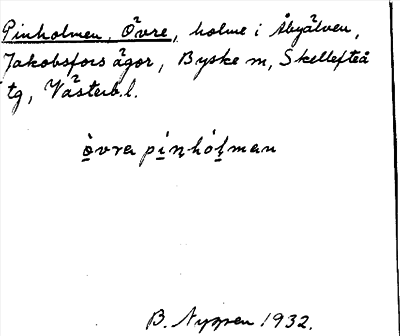 Pinholmen, Övre, holme i Åbyälven,
Jakobsfors ägor, Byske sn, Skellefteå
tg, Västerb.l.
ò̱vra pí̱ṉhó̱ḻman
B. Nyggen 1932.